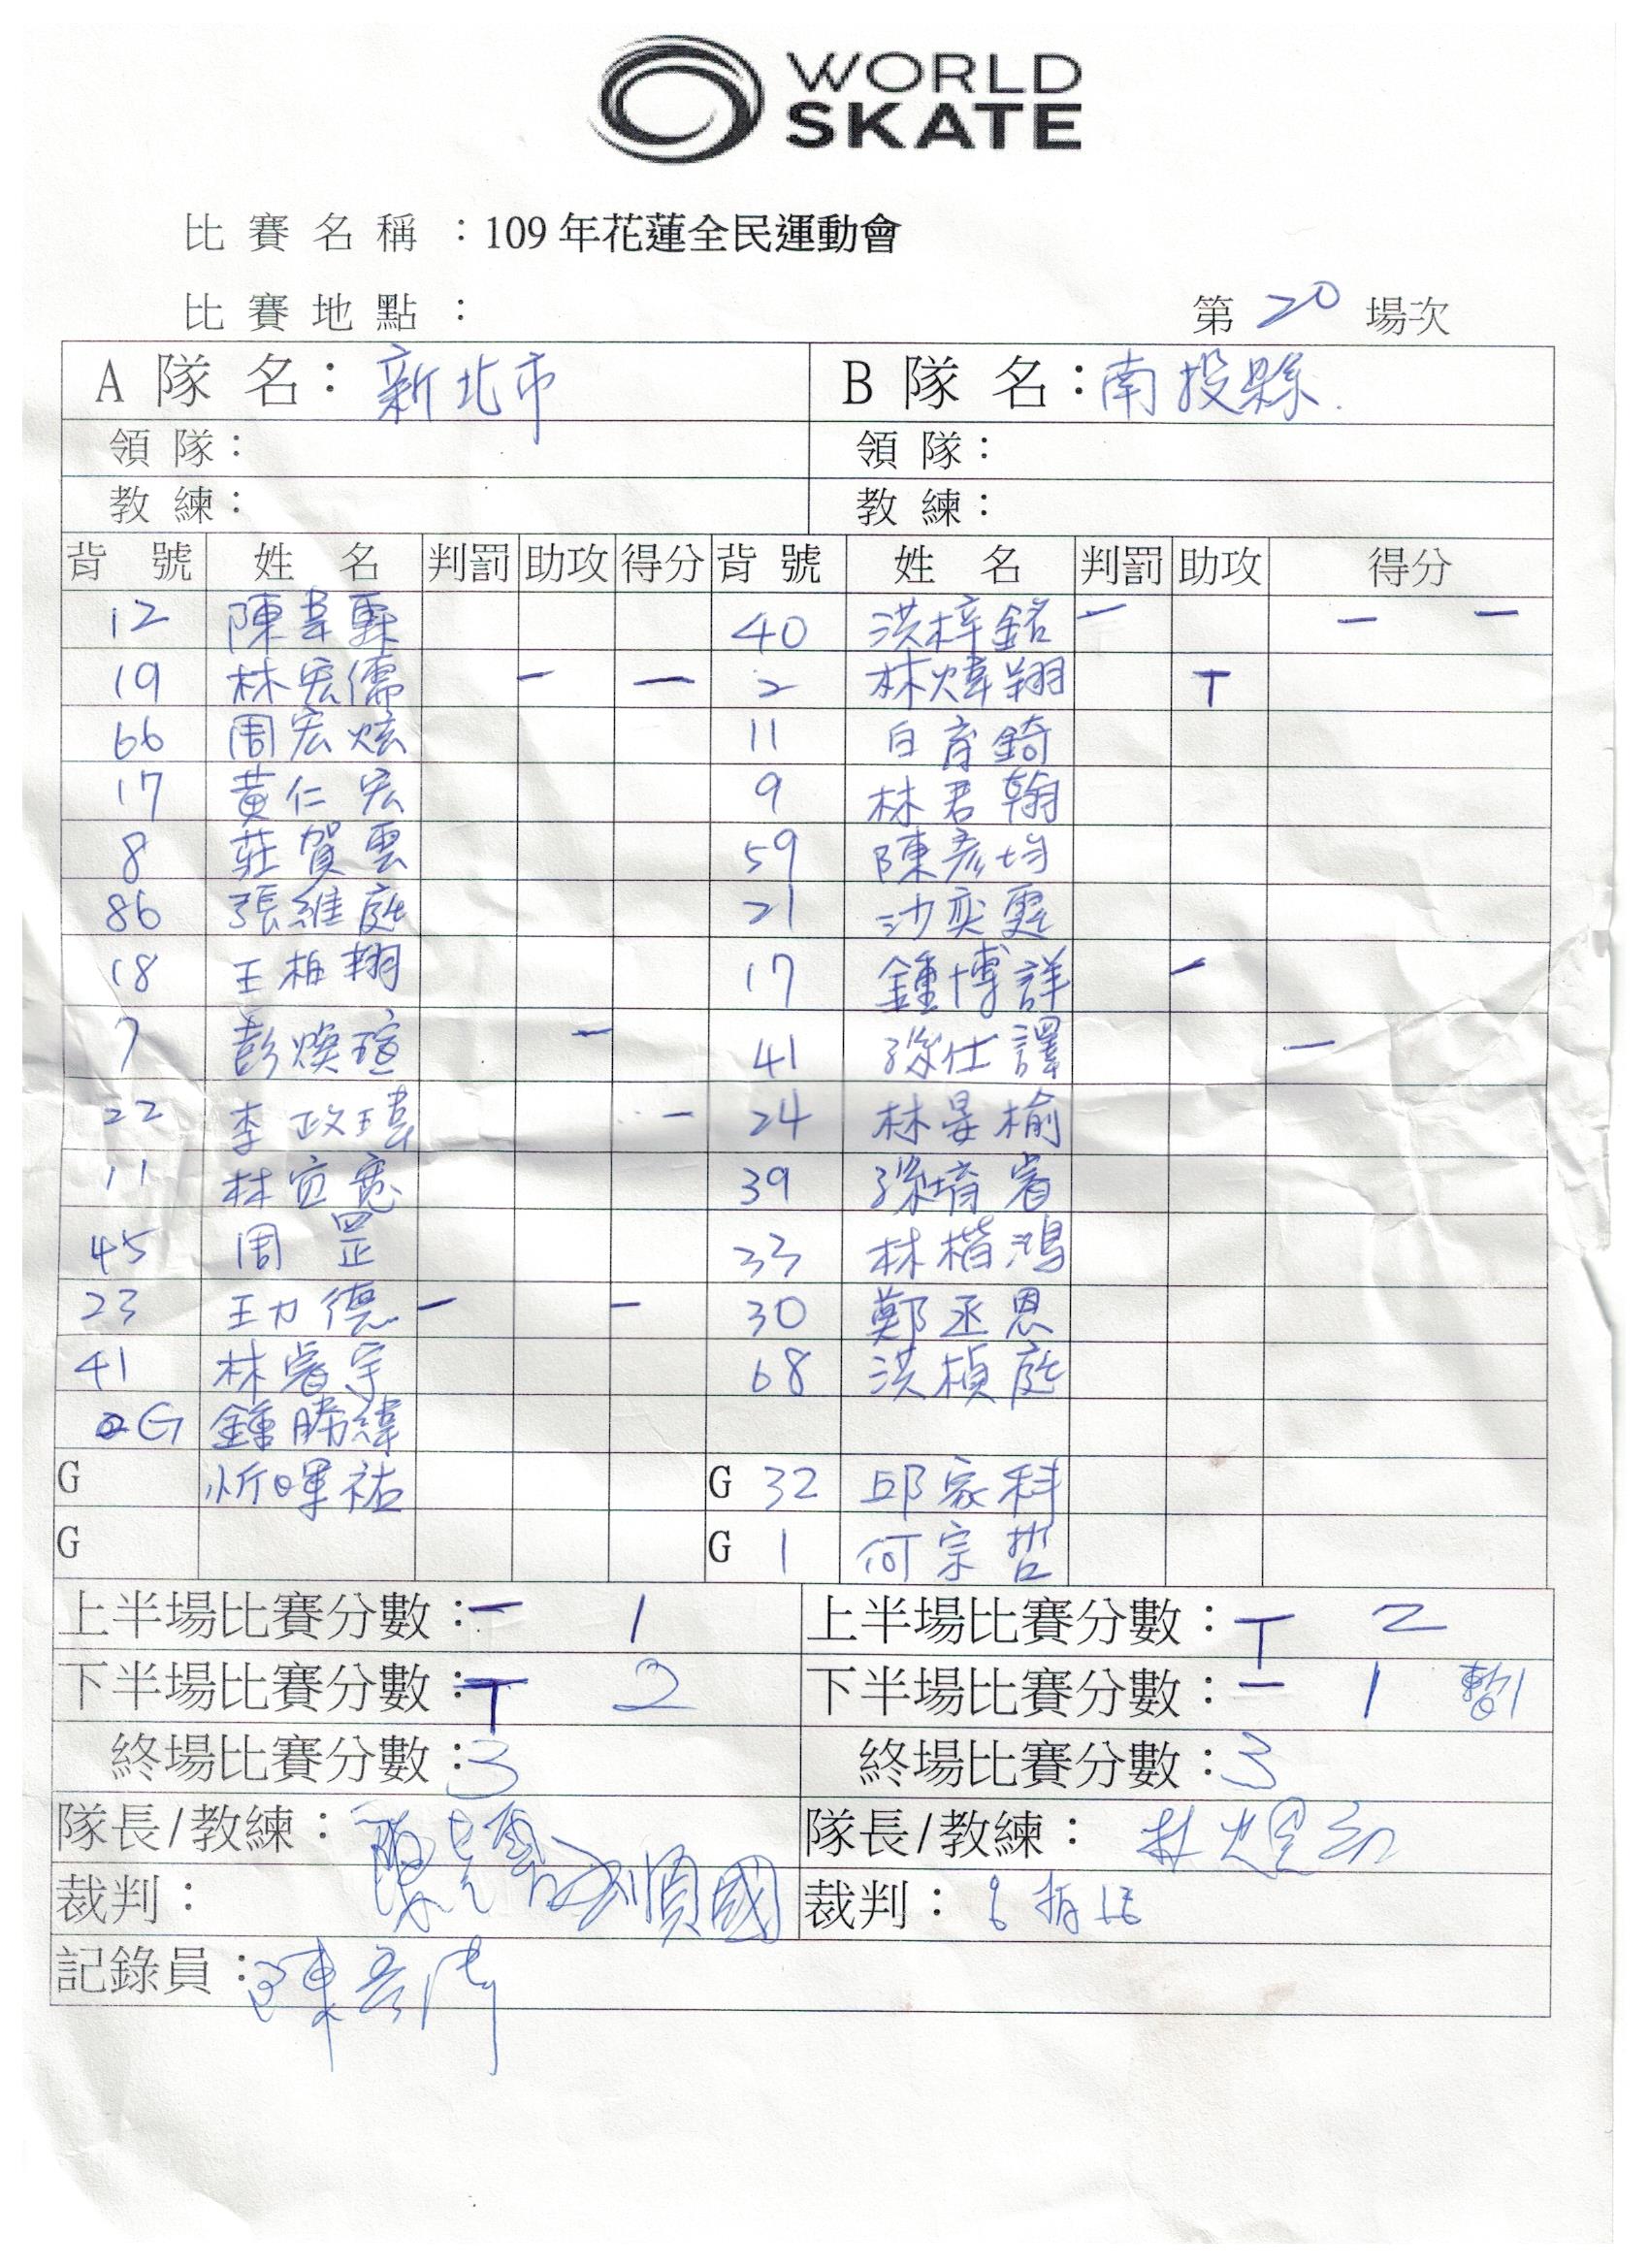 WORLD
SKATE
比賽名稱：109年花蓮全民運動會
比賽地點：
第 20 場次
A 隊 名：新北市 B 隊 名：南投縣
領 隊： 領 隊：
教 練： 教 練：
背 號 姓 名 判罰 助攻 得分 背 號 姓 名 判罰 助攻 得分
12 陳韋 40 洪梓銘 一 一 一
19 林宏儒 一 一 2 林煒翔 T
66 周宏炫 11 白育錡
17 黃仁宏 9 林君翰
8 莊賀雲 59 陳彥均
86 張維庭 21 沙奕霆
18 王柏翔 17 鍾博詳 一
7 彭煥瑄 一 41 孫仕譯 一
22 李政瑋 一 24 林晏榆
11 林宜寬 39 孫堉睿
45 周罡 33 林楷鴻
23 王力德 一 一 30 鄭丞恩
41 林睿宇 68 洪楨庭
G 鍾勝緯
G 忻暉祐 G 32 邱家科
G G 1 何宗哲
上半場比賽分數：一 1 上半場比賽分數：T 2
下半場比賽分數：T 2 下半場比賽分數：一 1 暫1
終場比賽分數：3 終場比賽分數：3
隊長/教練： 隊長/教練：
裁判：順國 裁判：
記錄員：陳